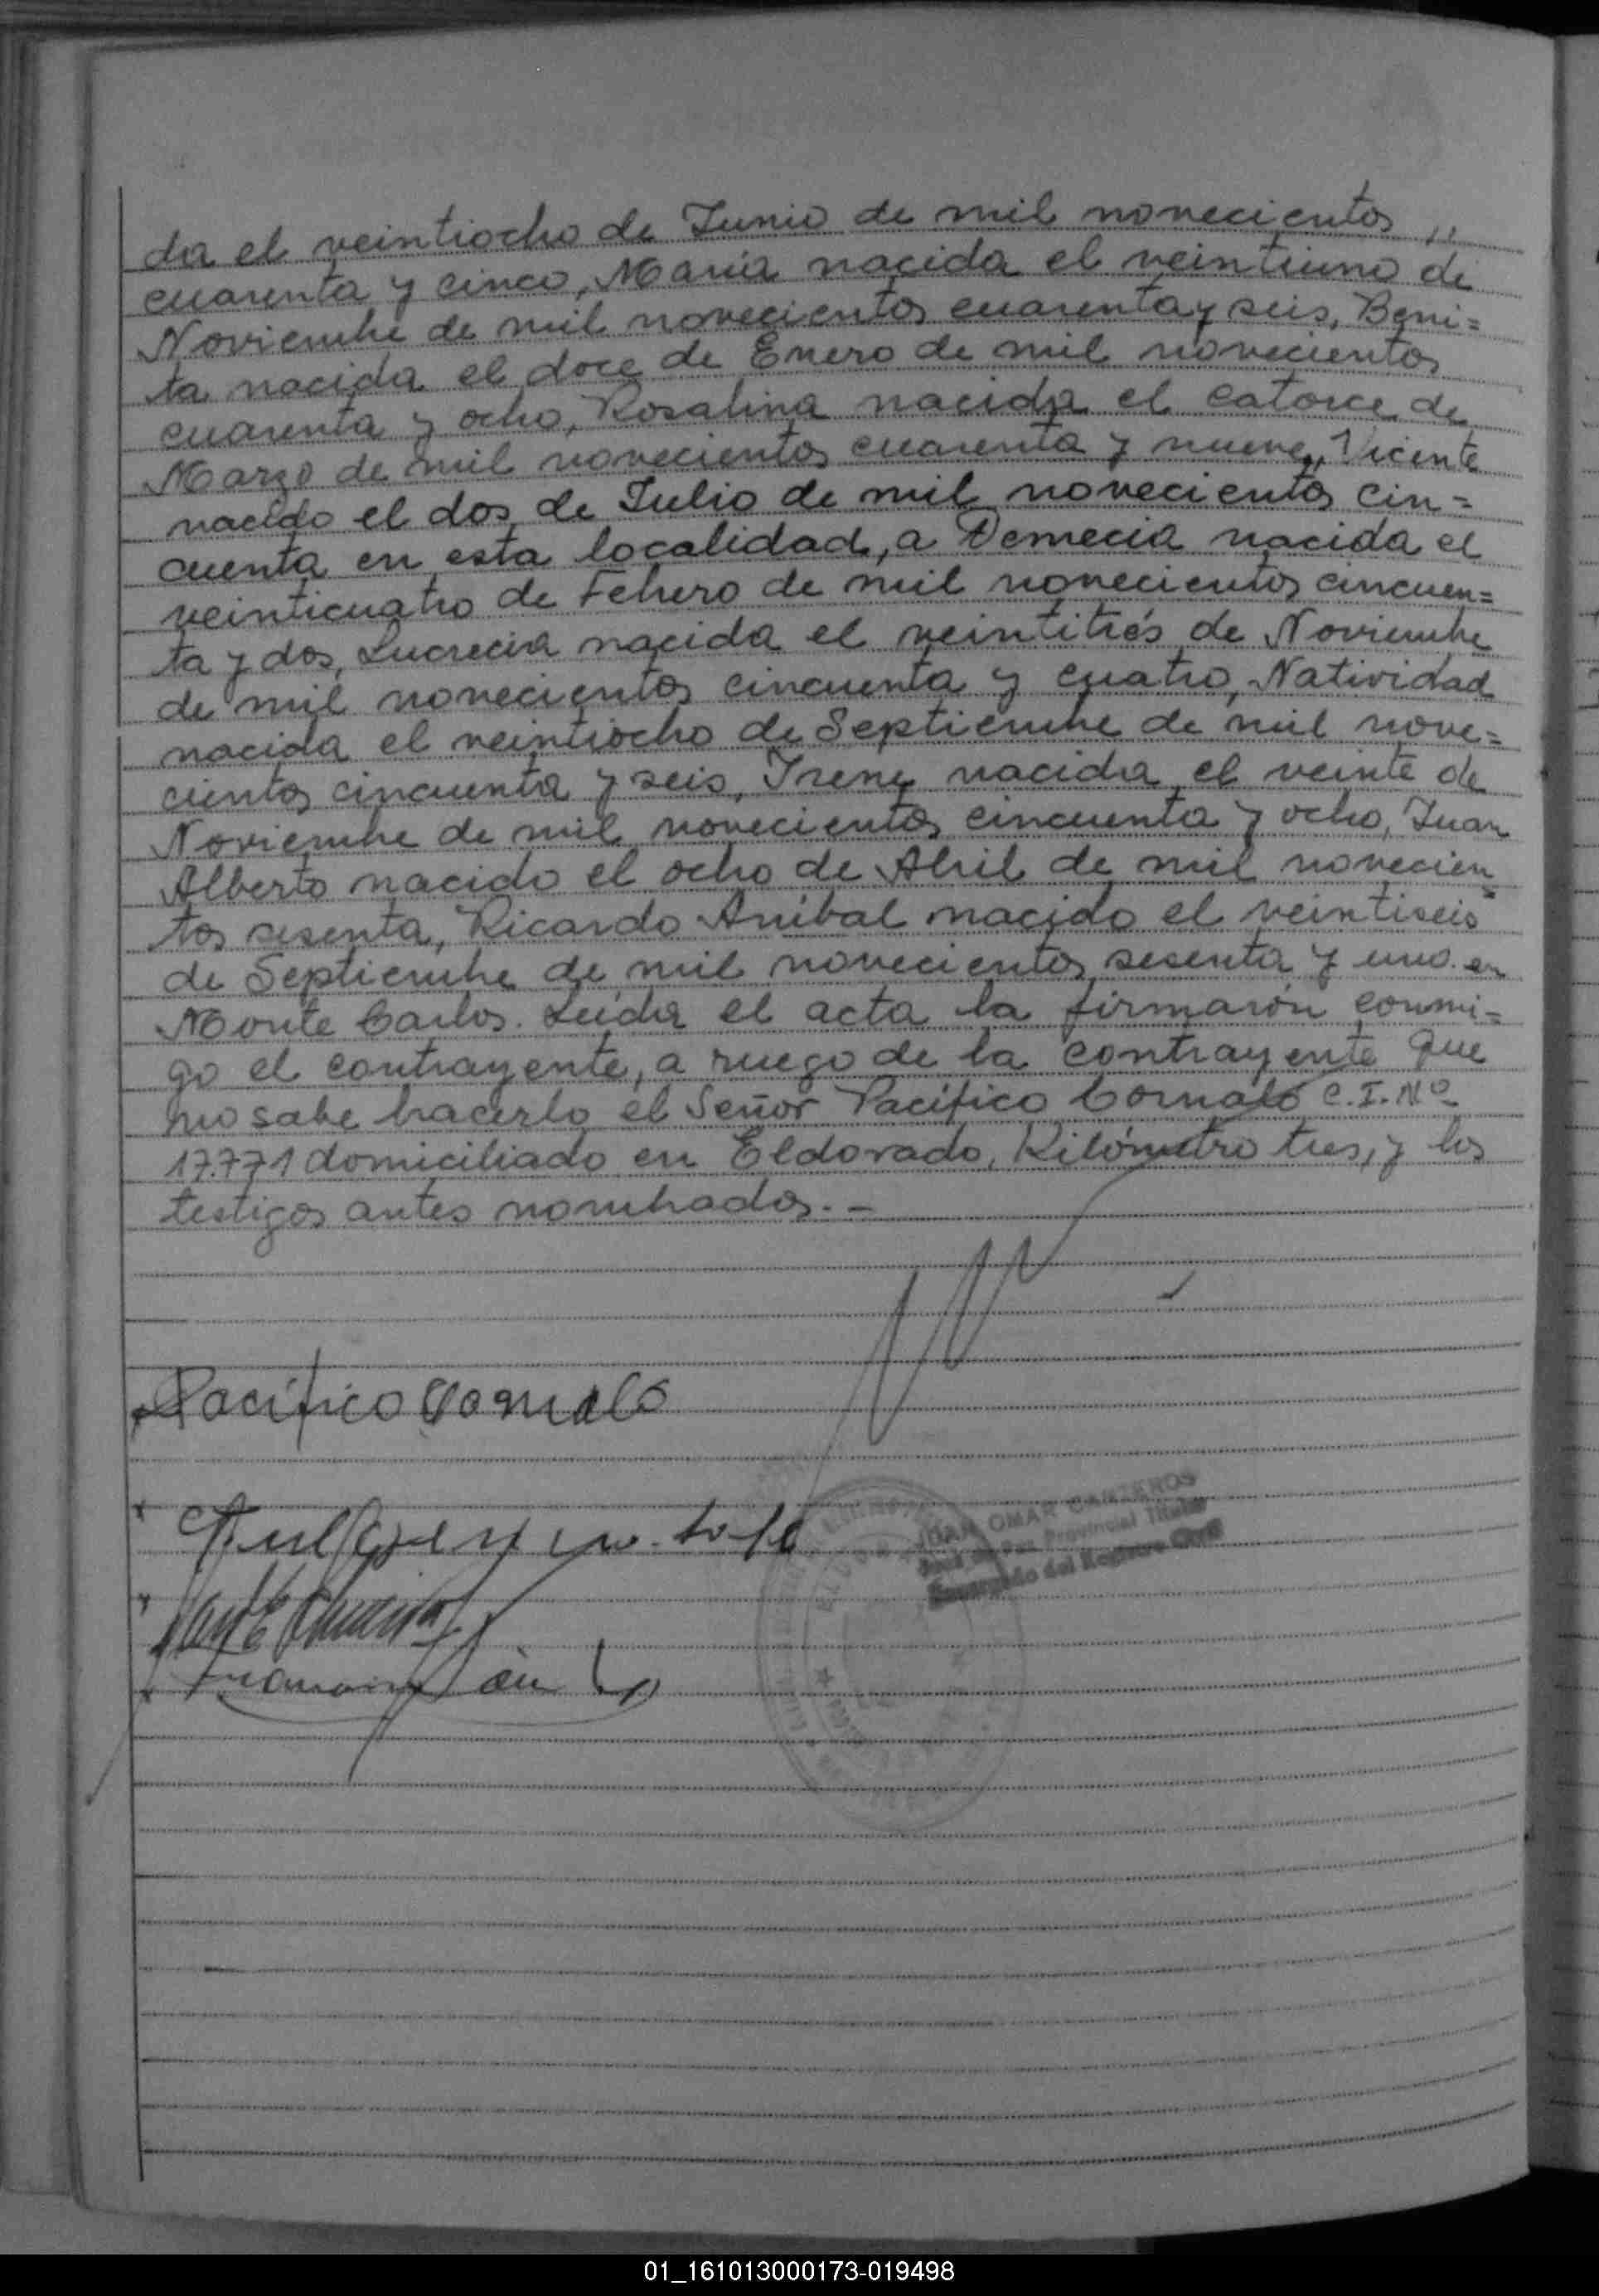 da el veintiocho de Junio de mil novecientos
cuarenta y cinco, María nacida el veintiuno de
Noviembre de mil novecientos cuarenta y seis, Beni=
ta nacida el doce de Enero de mil novecientos
cuarenta y ocho, Rosalina nacida el catorce de
Marzo de mil novecientos cuarenta y nueve, Vicente
nacido el dos de Julio de mil novecientos cin=
cuenta en esta localidad, a Demecia nacida el
veinticuatro de Febrero de mil novecientos cincuen=
ta y dos, Lucrecia nacida el veintitrés de Noviembre
de mil novecientos cincuenta y cuatro, Natividad
nacida el veintiocho de Septiembre de mil nove=
cientos cincuenta y seis, Irene nacida el veinte de
Noviembre de mil novecientos cincuenta y ocho, Juan
Alberto nacido el ocho de Abril de mil novecien=
tos sesenta, Ricardo Aníbal nacido el veintiseis
de Septiembre de mil novecientos sesenta y uno en
Monte Carlos. Leída el acta la firmaron conmi=
go el contrayente, a ruego de la contrayente que
no sabe hacerlo el Señor Pacífico Cornaló C.I. Nº
17.771 domiciliado en Eldorado, Kilómetro tres, y los
testigos antes nombrados.-
Pacífico Cornaló
JUAN OMAR CANTEROS
Juez de Paz Provincial Titular
Encargado del Registro Civil
01_161013000173-019498